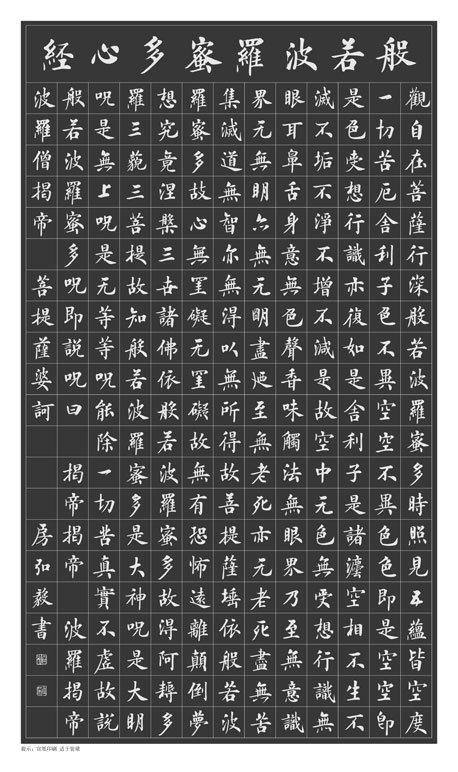 般若波羅蜜多心經
觀自在菩薩行深般若波羅蜜多時照見五蘊皆空度
一切苦厄舍利子色不異空空不異色色即是空空即
是色受想行識亦復如是舍利子是諸灋空相不生不
滅不垢不淨不增不減是故空中无色無受想行識無
眼耳鼻舌身意無色聲香味觸法無眼界乃至無意識
界无無明亦無无明盡迺至無老死亦无老死盡無苦
集滅道無智亦無得以無所得故菩提薩埵依般若波
羅蜜多故心無罣礙无罣礙故無有恐怖遠離顛倒夢
想究竟涅槃三世諸佛依般若波羅蜜多故得阿耨多
羅三藐三菩提故知般若波羅蜜多是大神呪是大明
呪是無上呪是无等等呪能除一切苦真實不虛故說
般若波羅蜜多呪即說呪曰 揭帝揭帝 波羅揭帝
波羅僧揭帝 菩提薩婆訶 房弘毅書
提示：宣纸印刷 适于装裱